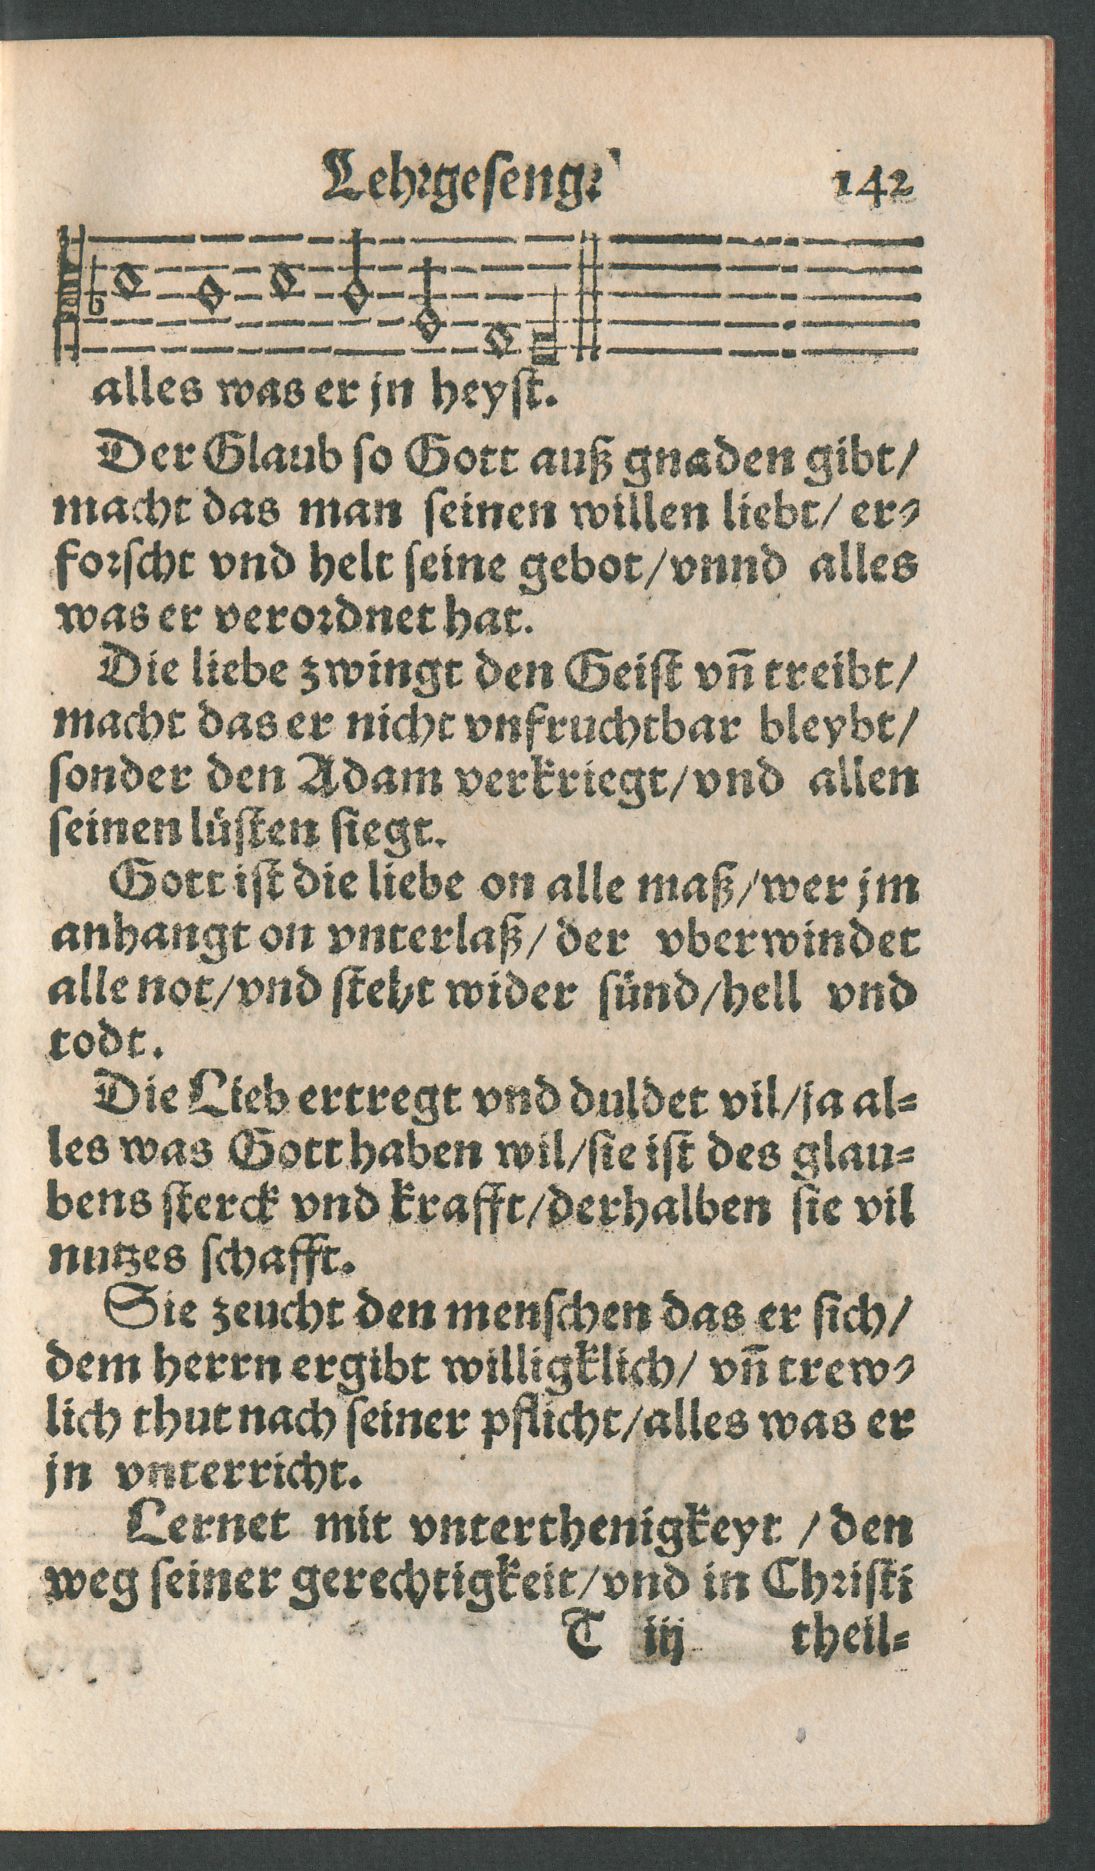 Lehrgeseng. 142
alles was er jn heyst.
Der Glaub so Gott auß gnaden gibt/
macht das man seinen willen liebt/ er-
forscht vnd helt seine gebot/vnnd alles
was er verordnet hat.
Die liebe zwingt den Geist vn̄ treibt/
macht das er nicht vnfruchtbar bleybt/
sonder den Adam verkriegt/vnd allen
seinen lüsten siegt.
Gott ist die liebe on alle maß/wer jm
anhangt on vnterlaß/ der vberwindet
alle not/vnd steht wider sünd/hell vnd
todt.
Die Lieb ertregt vnd duldet vil/ja al=
les was Gott haben wil/sie ist des glau=
bens sterck vnd krafft/derhalben sie vil
nutzes schafft.
Sie zeucht den menschen das er sich/
dem herrn ergibt willigklich/ vn̄ trew-
lich thut nach seiner pflicht/alles was er
jn vnterricht.
Lernet mit vnterthenigkeyt / den
weg seiner gerechtigkeit/vnd in Christi
T iij theil=